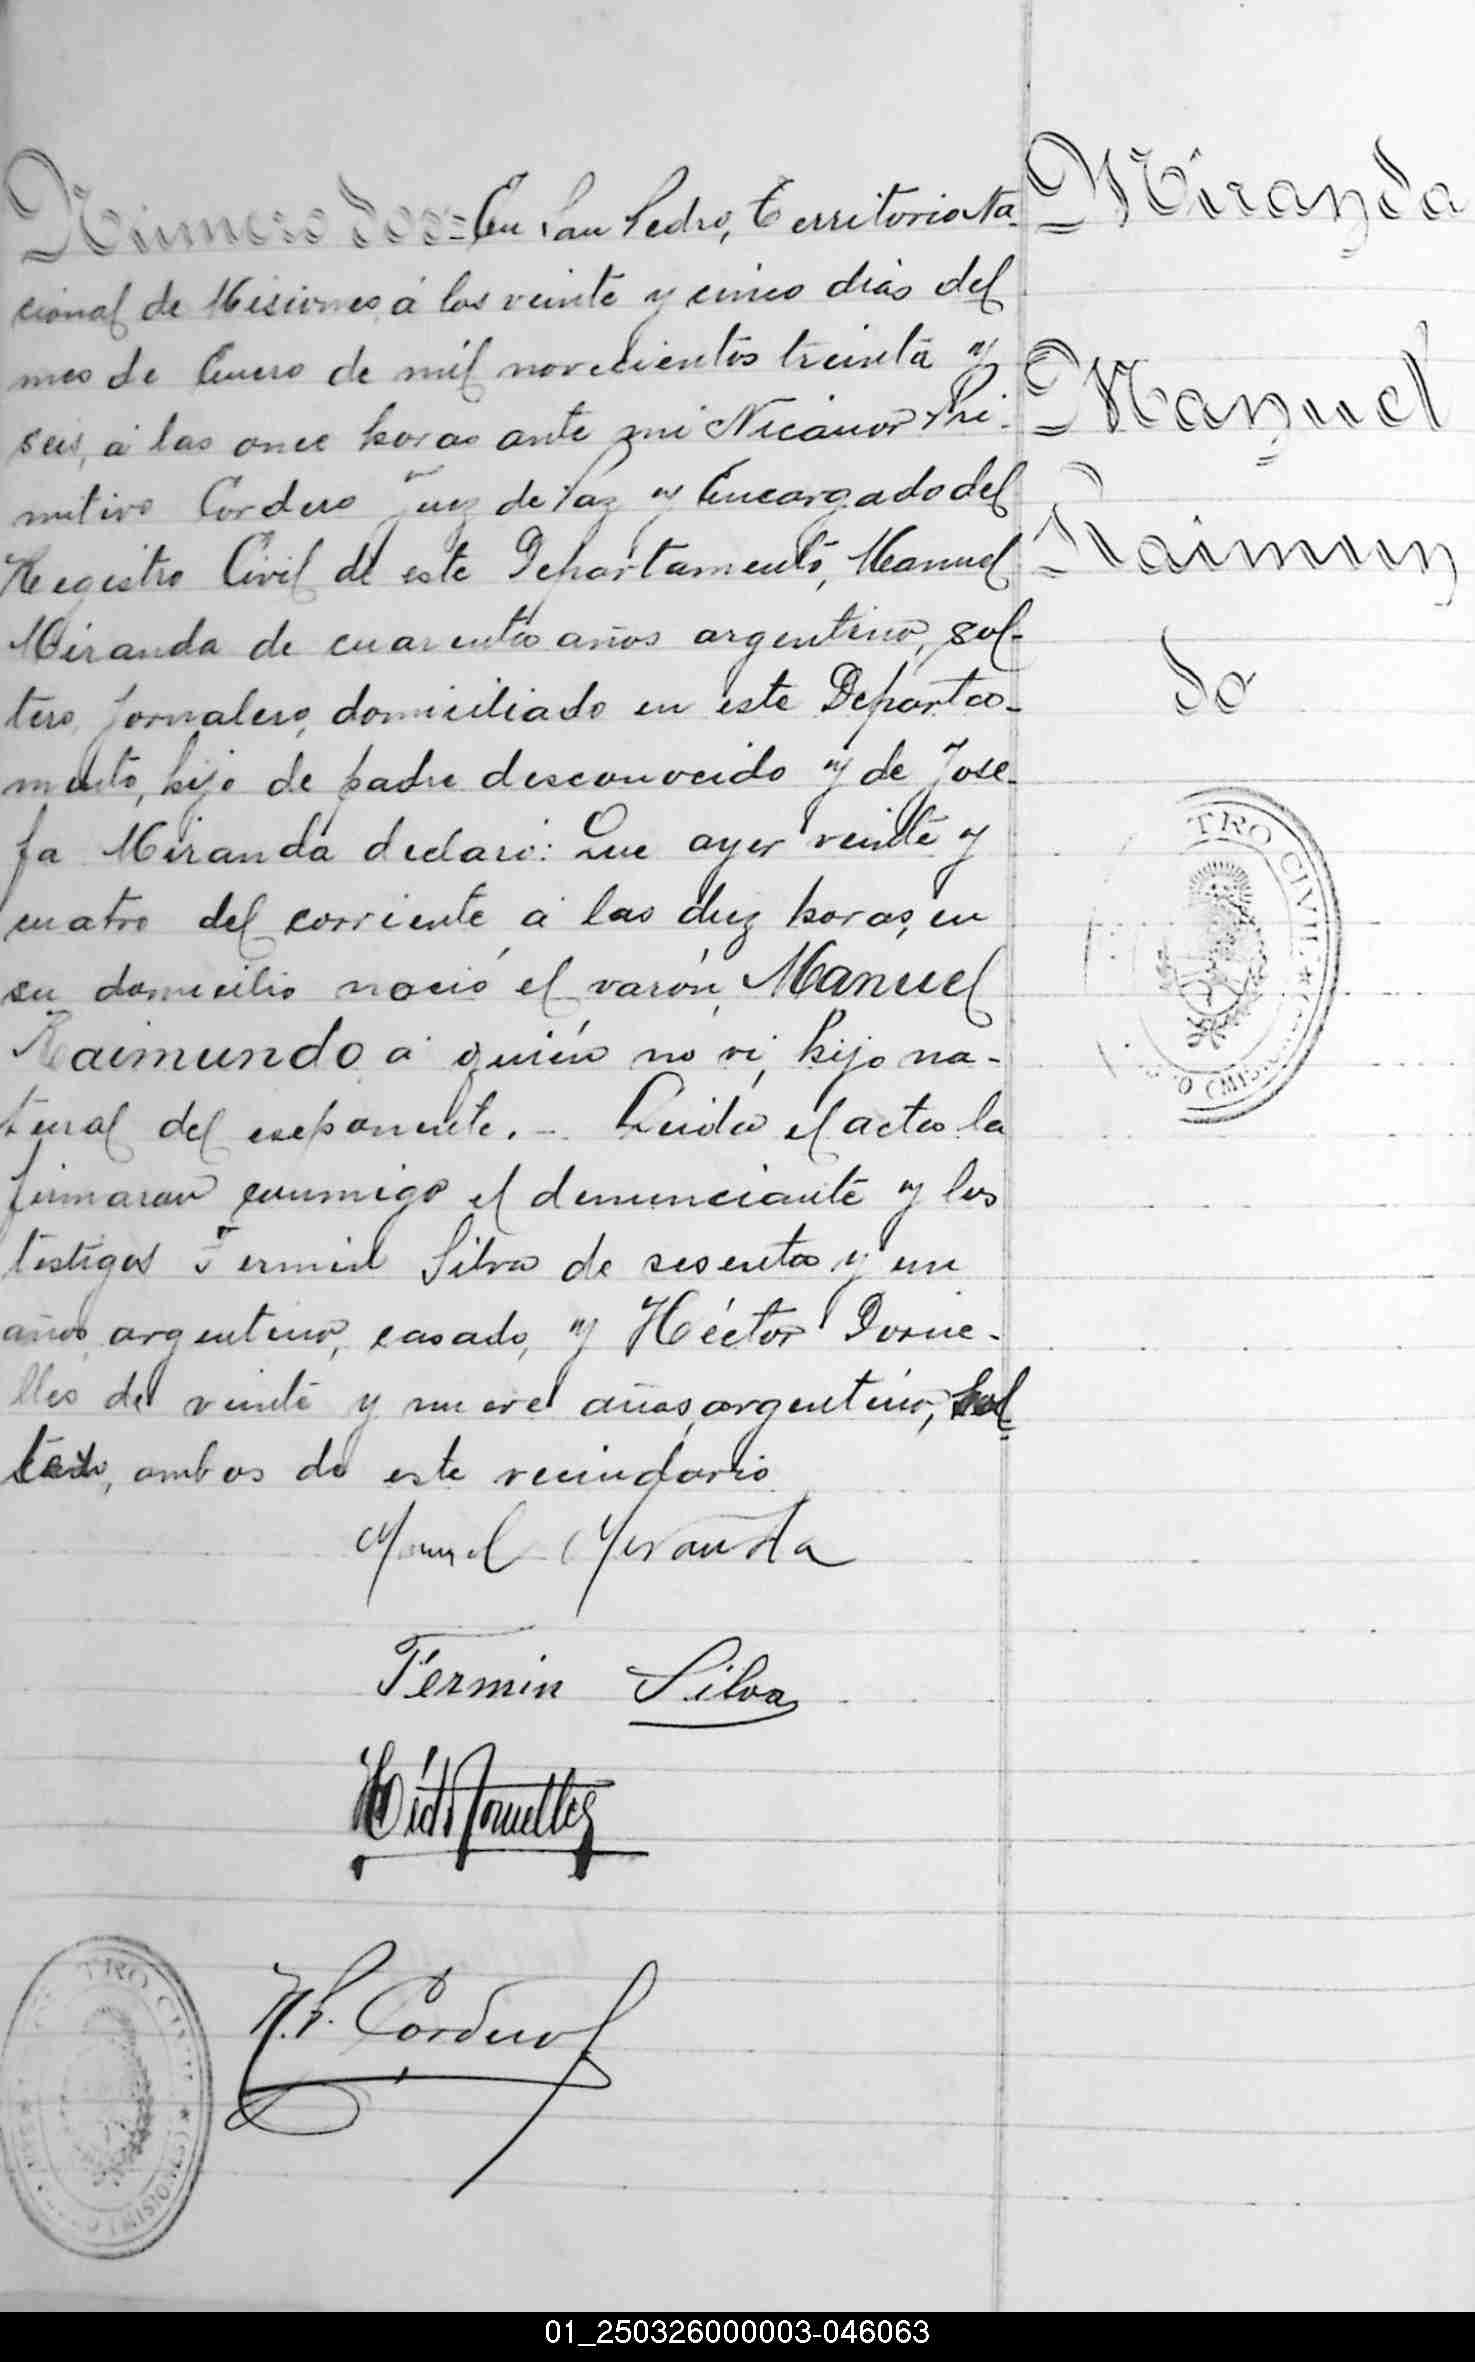 Número dos= En San Pedro, Territorio Na-
cional de Misiones, á los veinte y cinco dias del
mes de Enero de mil novecientos treinta y
seis, á las once horas ante mi Nicanor Pri-
mitivo Cordero Juez de Paz y Encargado del
Registro Civil de este Departamento, Manuel
Miranda de cuarenta años argentino, sol-
tero, jornalero, domiciliado en este Departa-
mento, hijo de padre desconocido y de Jose-
fa Miranda declaró: Que ayer veinte y
cuatro del corriente á las diez horas, en
su domicilio nació el varón, Manuel
Raimundo á quién no ví, hijo na-
tural del exponente. — Leida el acta la
firmaron conmigo el denunciante y los
testigos Fermin Silva de sesenta y un
años, argentino, casado, y Héctor Dorne-
lles de veinte y nueve años, argentino, sol
tero, ambos de este vecindario
Manuel Miranda
Fermin Silva
Héctor Dornelles
N. P. Cordero
Miranda
Manuel
Raimun
do
TRO CIVIL
TRO CI
01_250326000003-046063